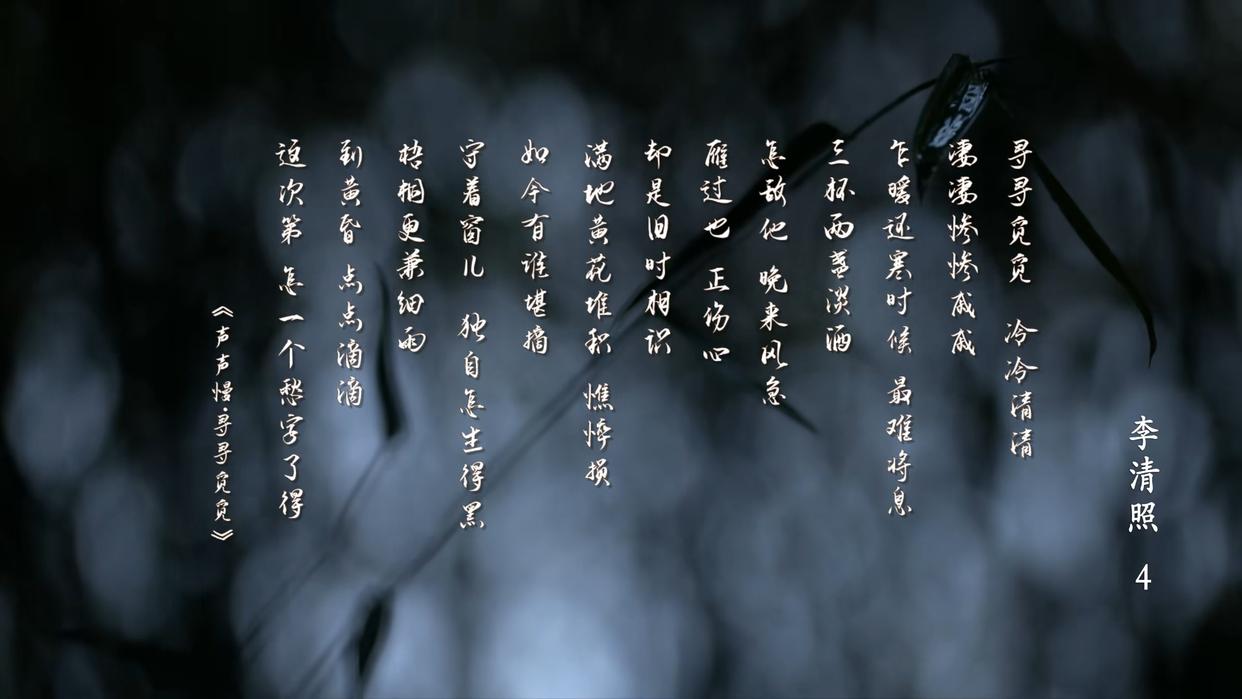 李清照 4
寻寻觅觅 冷冷清清
凄凄惨惨戚戚
乍暖还寒时候 最难将息
三杯两盏淡酒
怎敌他 晚来风急
雁过也 正伤心
却是旧时相识
满地黄花堆积 憔悴损
如今有谁堪摘
守着窗儿 独自怎生得黑
梧桐更兼细雨
到黄昏 点点滴滴
这次第 怎一个愁字了得
《声声慢·寻寻觅觅》